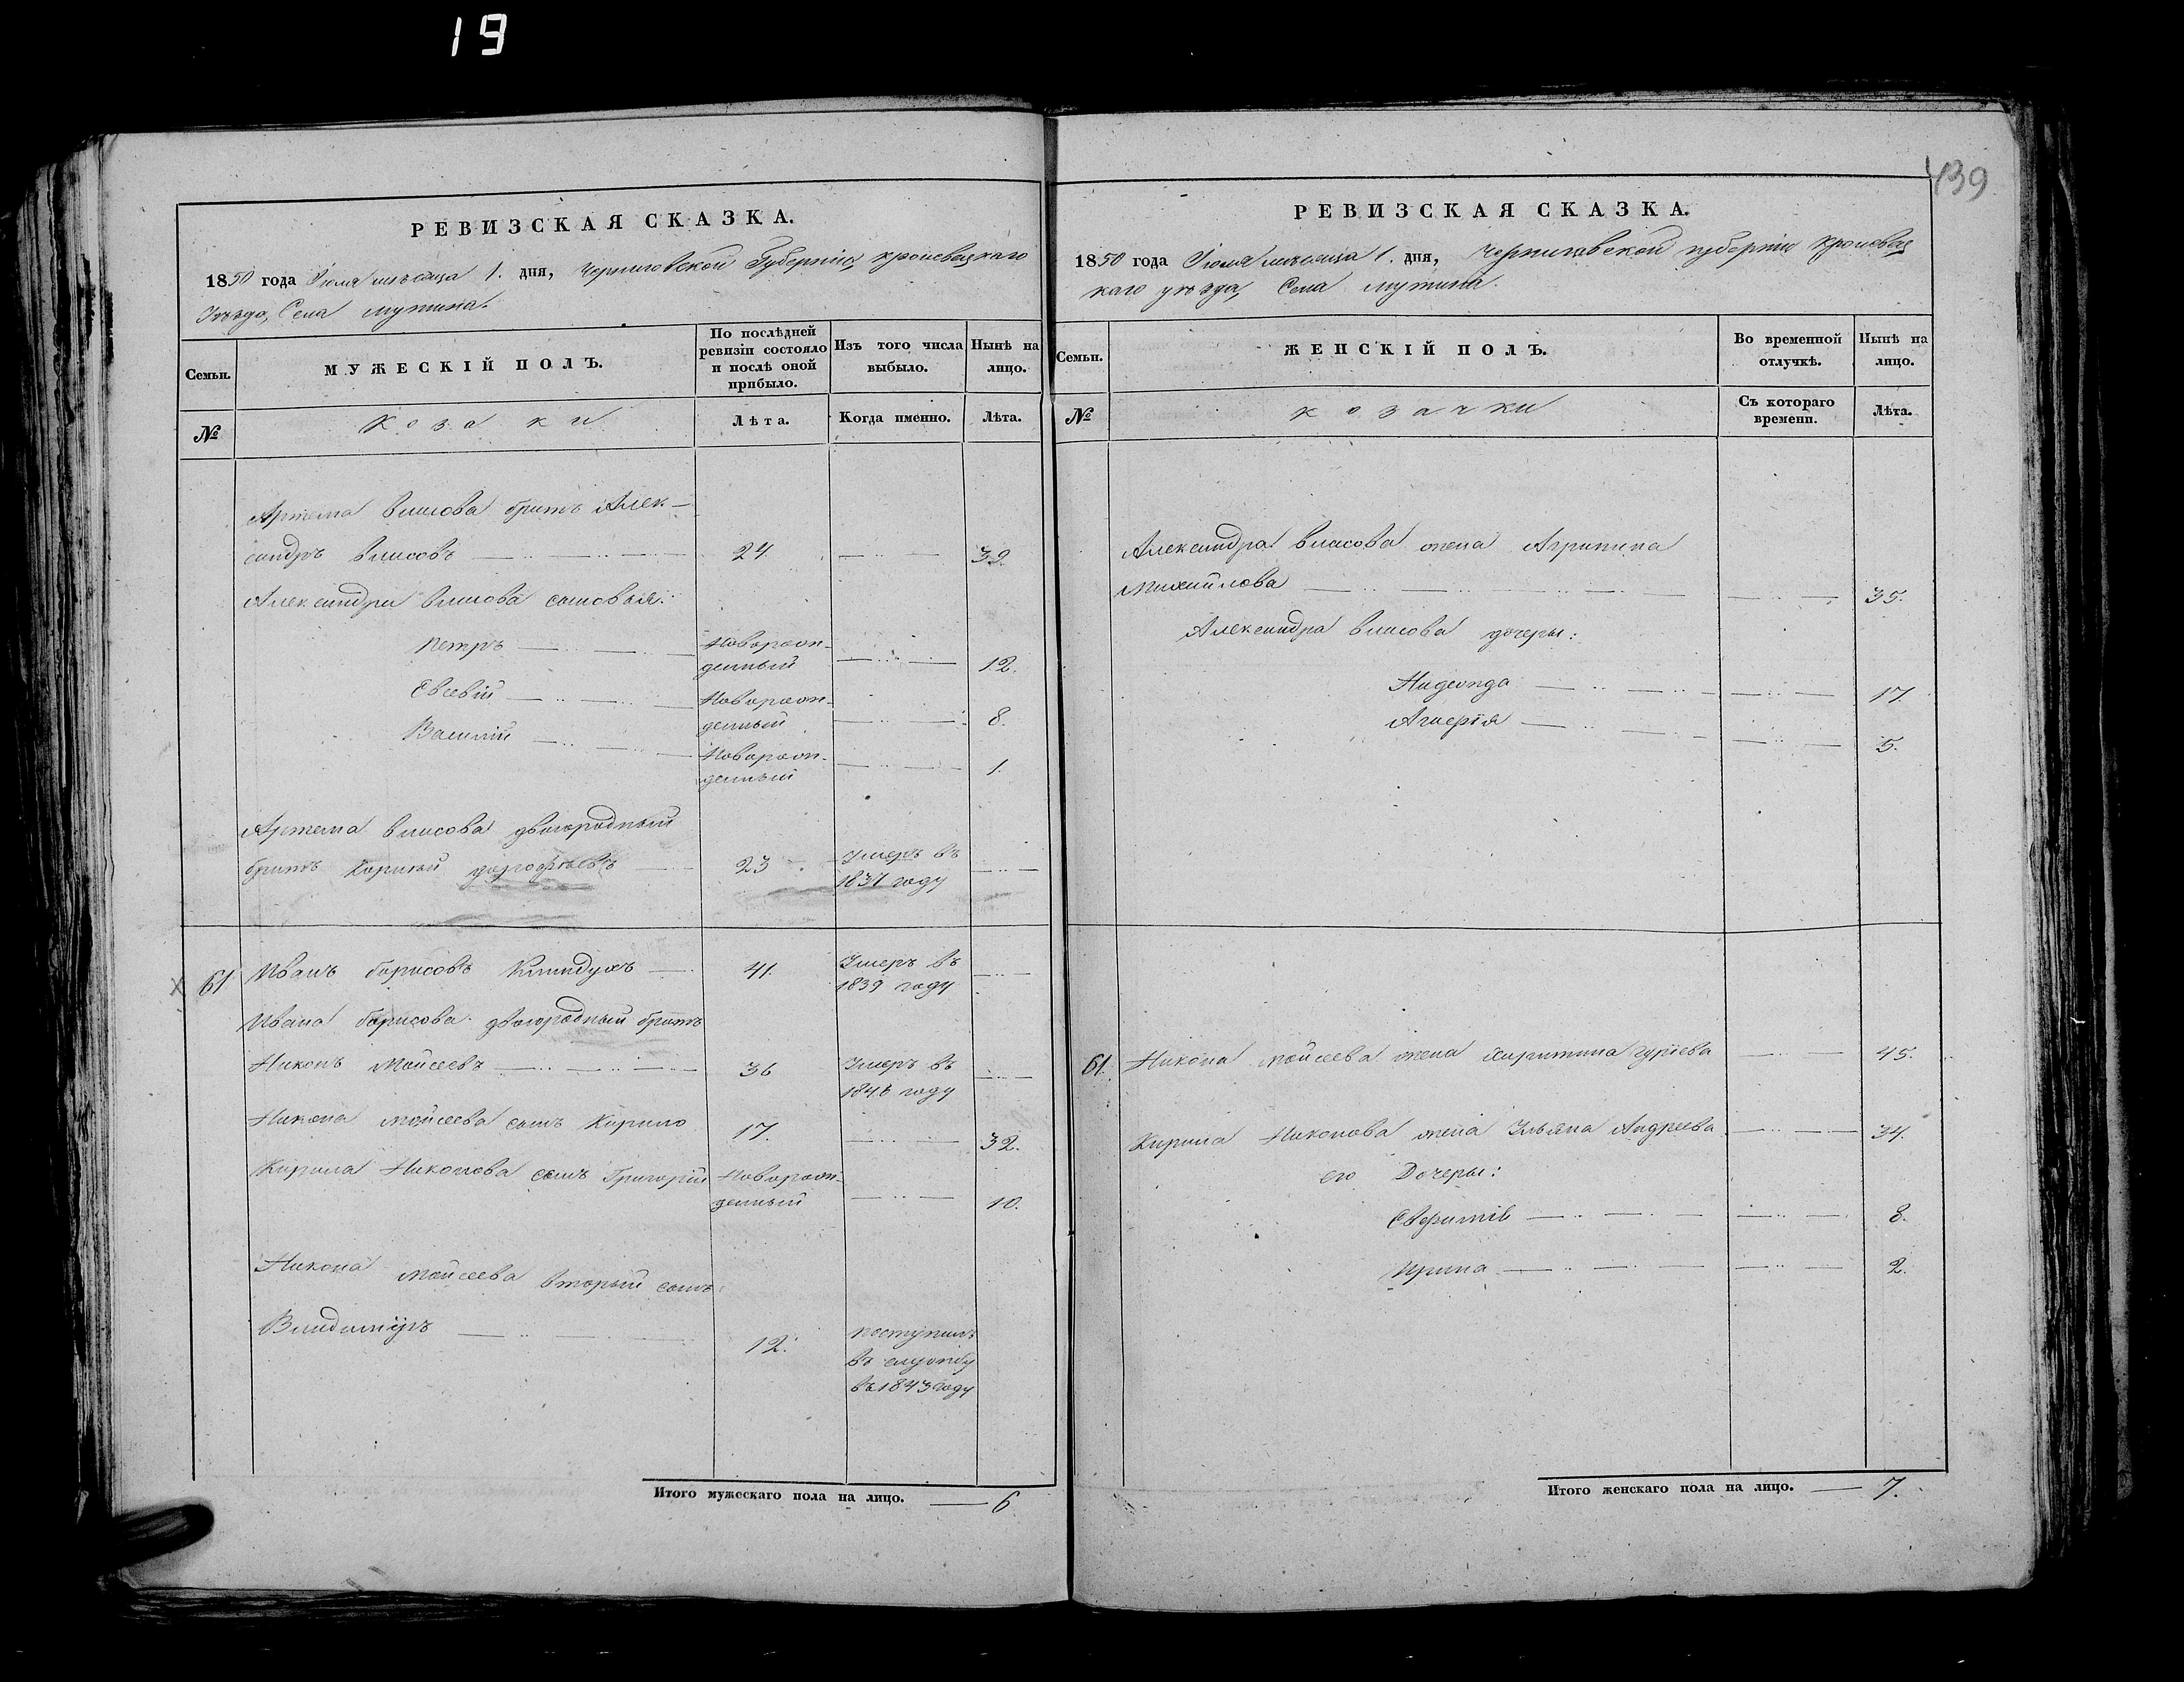 19
439
РЕВИЗСКАЯ СКАЗКА.
1850 года Іюля мѣсяца 1. дня, Черниговской Губерніи, кролевецкаго
Уѣзда, Села мутина.
Семьи.
МУЖЕСКІЙ ПОЛЪ.
По послѣдней ревизіи состояло и послѣ оной прибыло.
Изъ того числа выбыло.
Нынѣ на лицо.
№
козаки
Лѣта.
Когда именно.
Лѣта.
Артема власова братъ Алек-
сандръ власовъ 24. 39.
Александра власова сыновья:
Петръ Новорож-
денный 12.
Евсевій Новорож-
денный 8.
Василій Новорож-
денный 1.
Артема власова двоюродный
братъ Корнѣй дорофѣевъ 23 Умеръ въ
1837 году
61. Иванъ борисовъ 41. Умеръ въ
1839 году
Ивана борисова двоюродный братъ
Никонъ Мойсеевъ 36 Умеръ въ
1846 году
Никона мойсеева сынъ Кирило 17. 32.
Кирила Никонова сынъ Григорій Новорож-
денный 10.
Никона мойсеева вторый сынъ
Владиміръ 12. поступилъ
въ службу
въ 1843 году
Итого мужескаго пола на лицо. 6
РЕВИЗСКАЯ СКАЗКА.
1850 года Іюля мѣсяца 1. дня, Черниговской губерніи кролевец
каго уѣзда, Села мутина.
Семьи.
ЖЕНСКІЙ ПОЛЪ.
Во временной отлучкѣ.
Нынѣ на лицо.
№
козачки
Съ котораго времени.
Лѣта.
Александра власова жена Агрипина
Михайлова 35.
Александра власова дочеры:
17.
5.
61. Никона мойсеева жена Харитина гуріева 45.
Кирила Никонова жена Ульяна Андреева 34.
его Дочеры:
8.
Ирина 2.
Итого женскаго пола на лицо. 7.